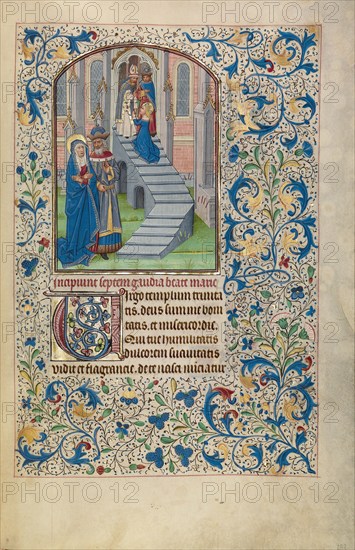 Incipiunt septem gaudia beate marie
Virgo templum trinita
tis. deus summe boni
tatis. et misericordie.
Qui tue humilitatis
dulcorem suauitatis
vidit et fragrancie. de te nasci nunciatur